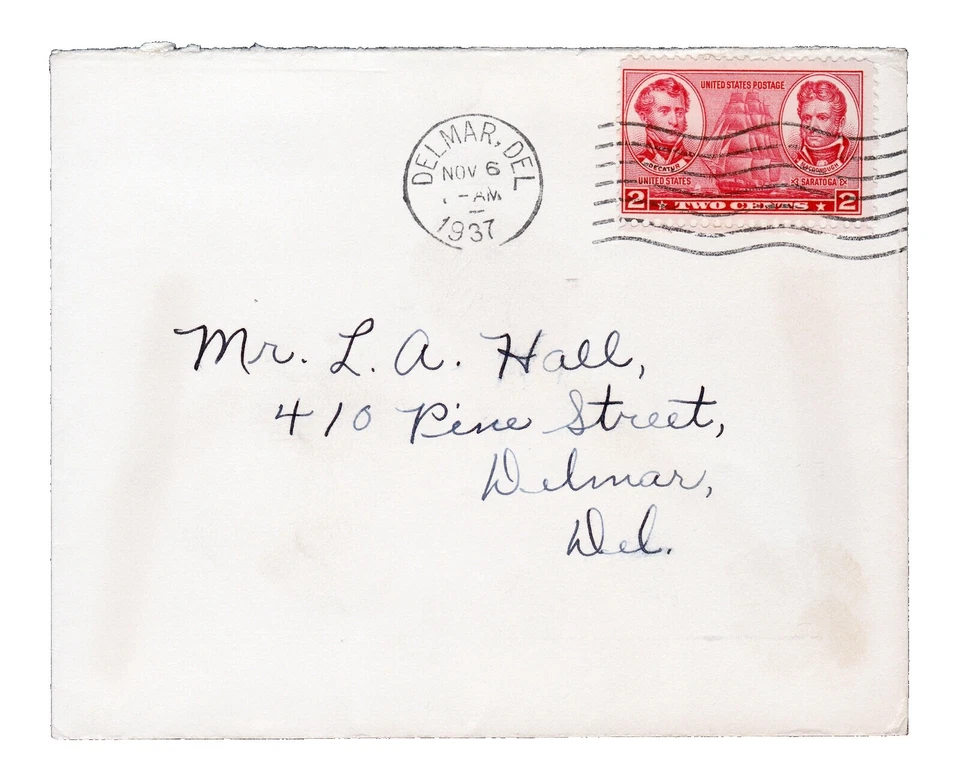 DELMAR, DEL
NOV 6
-AM
1937
UNITED STATES POSTAGE
DECATUR MACDONOUGH
UNITED STATES SARATOGA
2 TWO CENTS 2
Mr. L. A. Hall,
410 Pine Street,
Delmar,
Del.